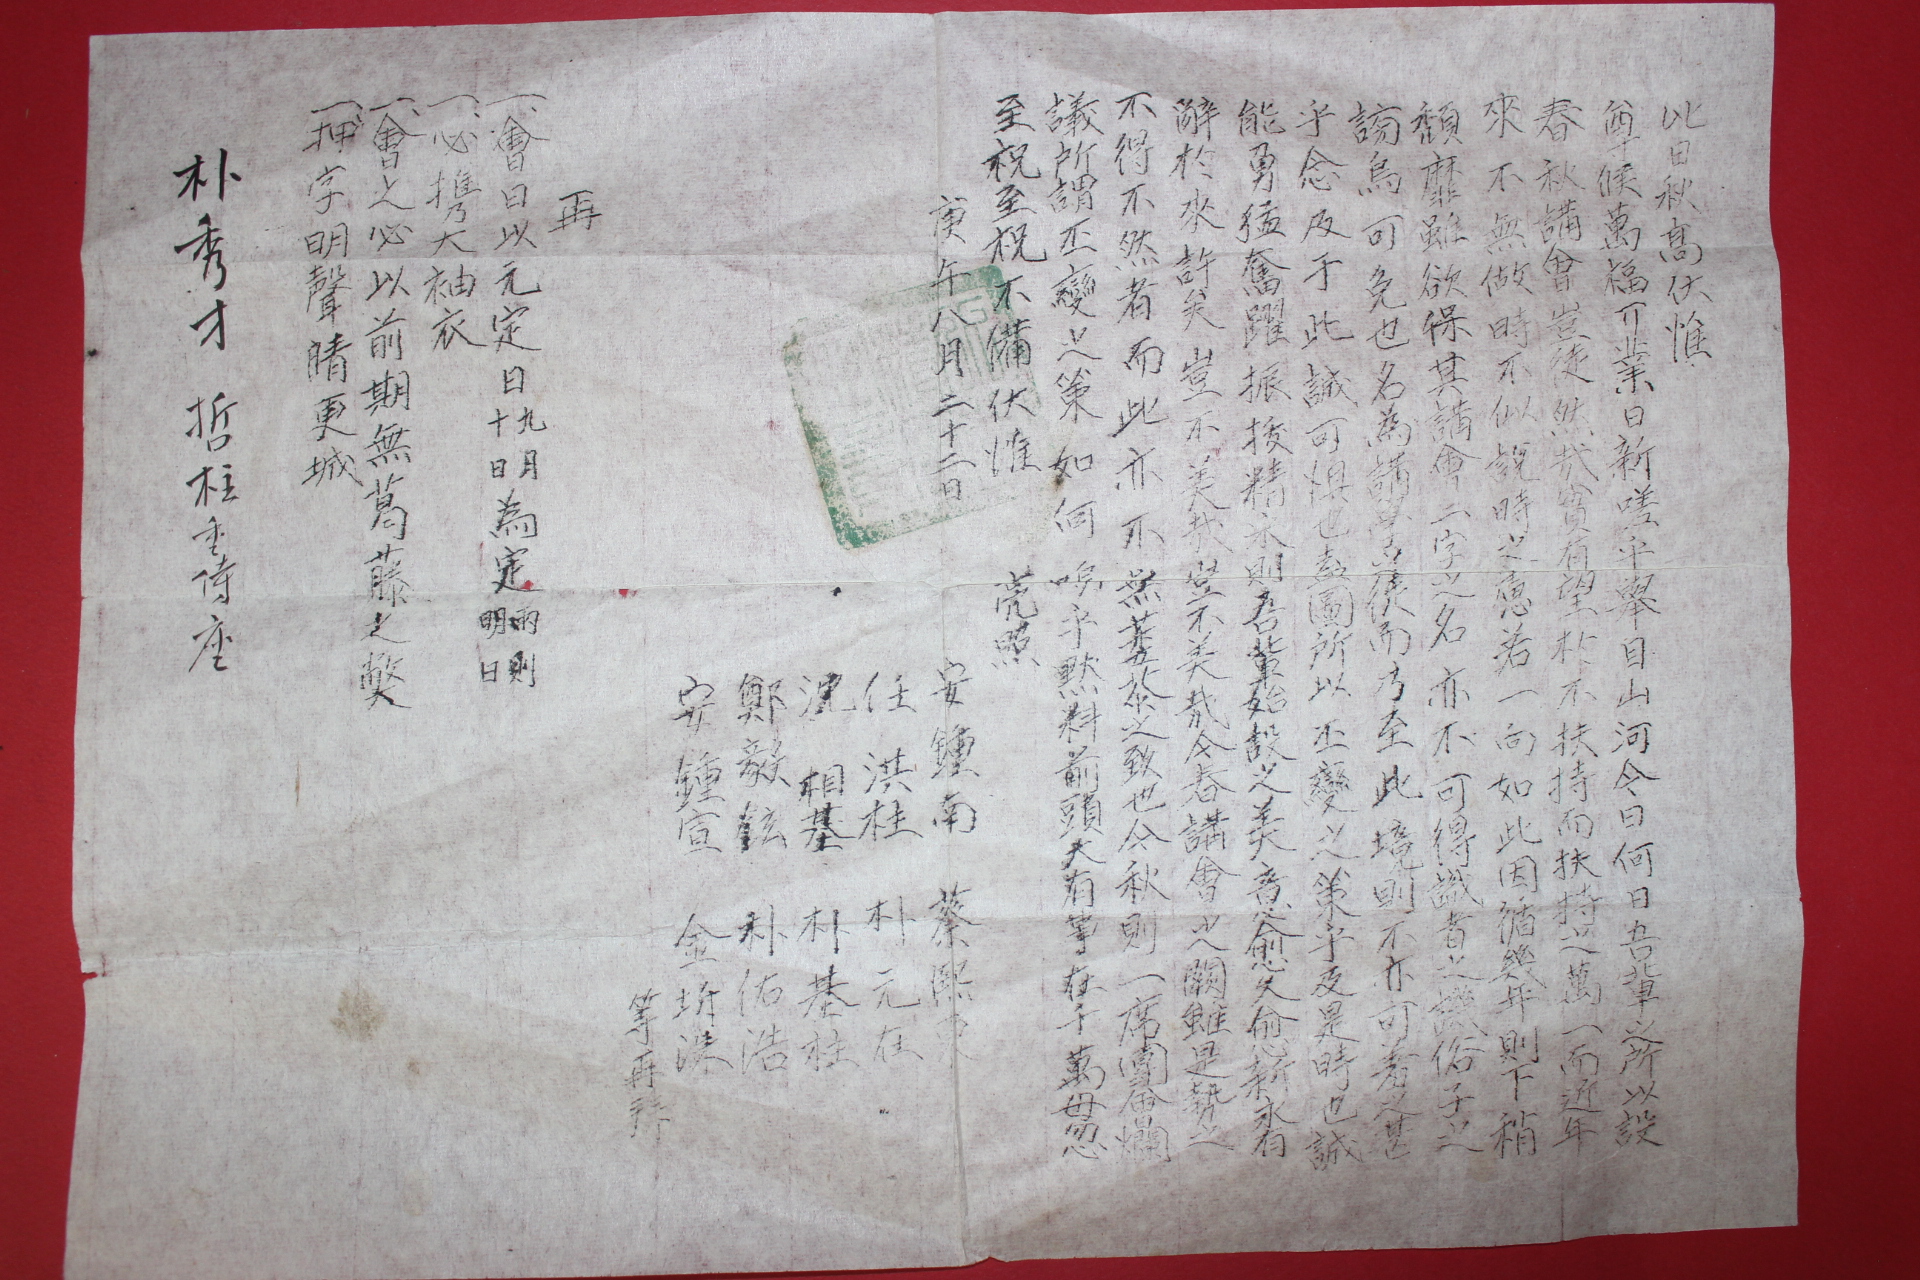 此日秋高伏惟
尊候萬福可業日新嗟乎舉目山河今日何日吾輩之所以設
春秋講會豈徒然哉實有望於不扶持而扶持之萬一而近年
來不無做時不似說時之患若一向如此因循幾年則下稍
頹靡雖欲保其講會二字之名亦不可得識者之譏俗子之
謗烏可免也名為講而乃至此境則不亦可羞之甚
乎念及于此誠可惧也盍圖所以丕變之策乎及是時也誠
能勇猛奮躍振拔精則吾輩始設之美意愈久愈新永有
辭於來許矣豈不美哉豈不美哉今春講會之闕雖是勢之
不得不然者而此亦不無之致也今秋則一席團會爛
議所謂丕變之策如何嗚乎默料前頭大有事在千萬毋忽
至祝至祝不備伏惟 亮照
庚午八月二十二日
安鍾南 蔡熙
任洪柱 朴元在
沈相基 朴基柱
鄭毅鉉 朴佑浩
安鍾宣 金洙
等再拜
再
一會日以元定日九月十日為定雨則明日
一必携大袖衣
一會之必以前期無葛藤之弊
一押字明聲晴更城
朴秀才 哲柱 侍座